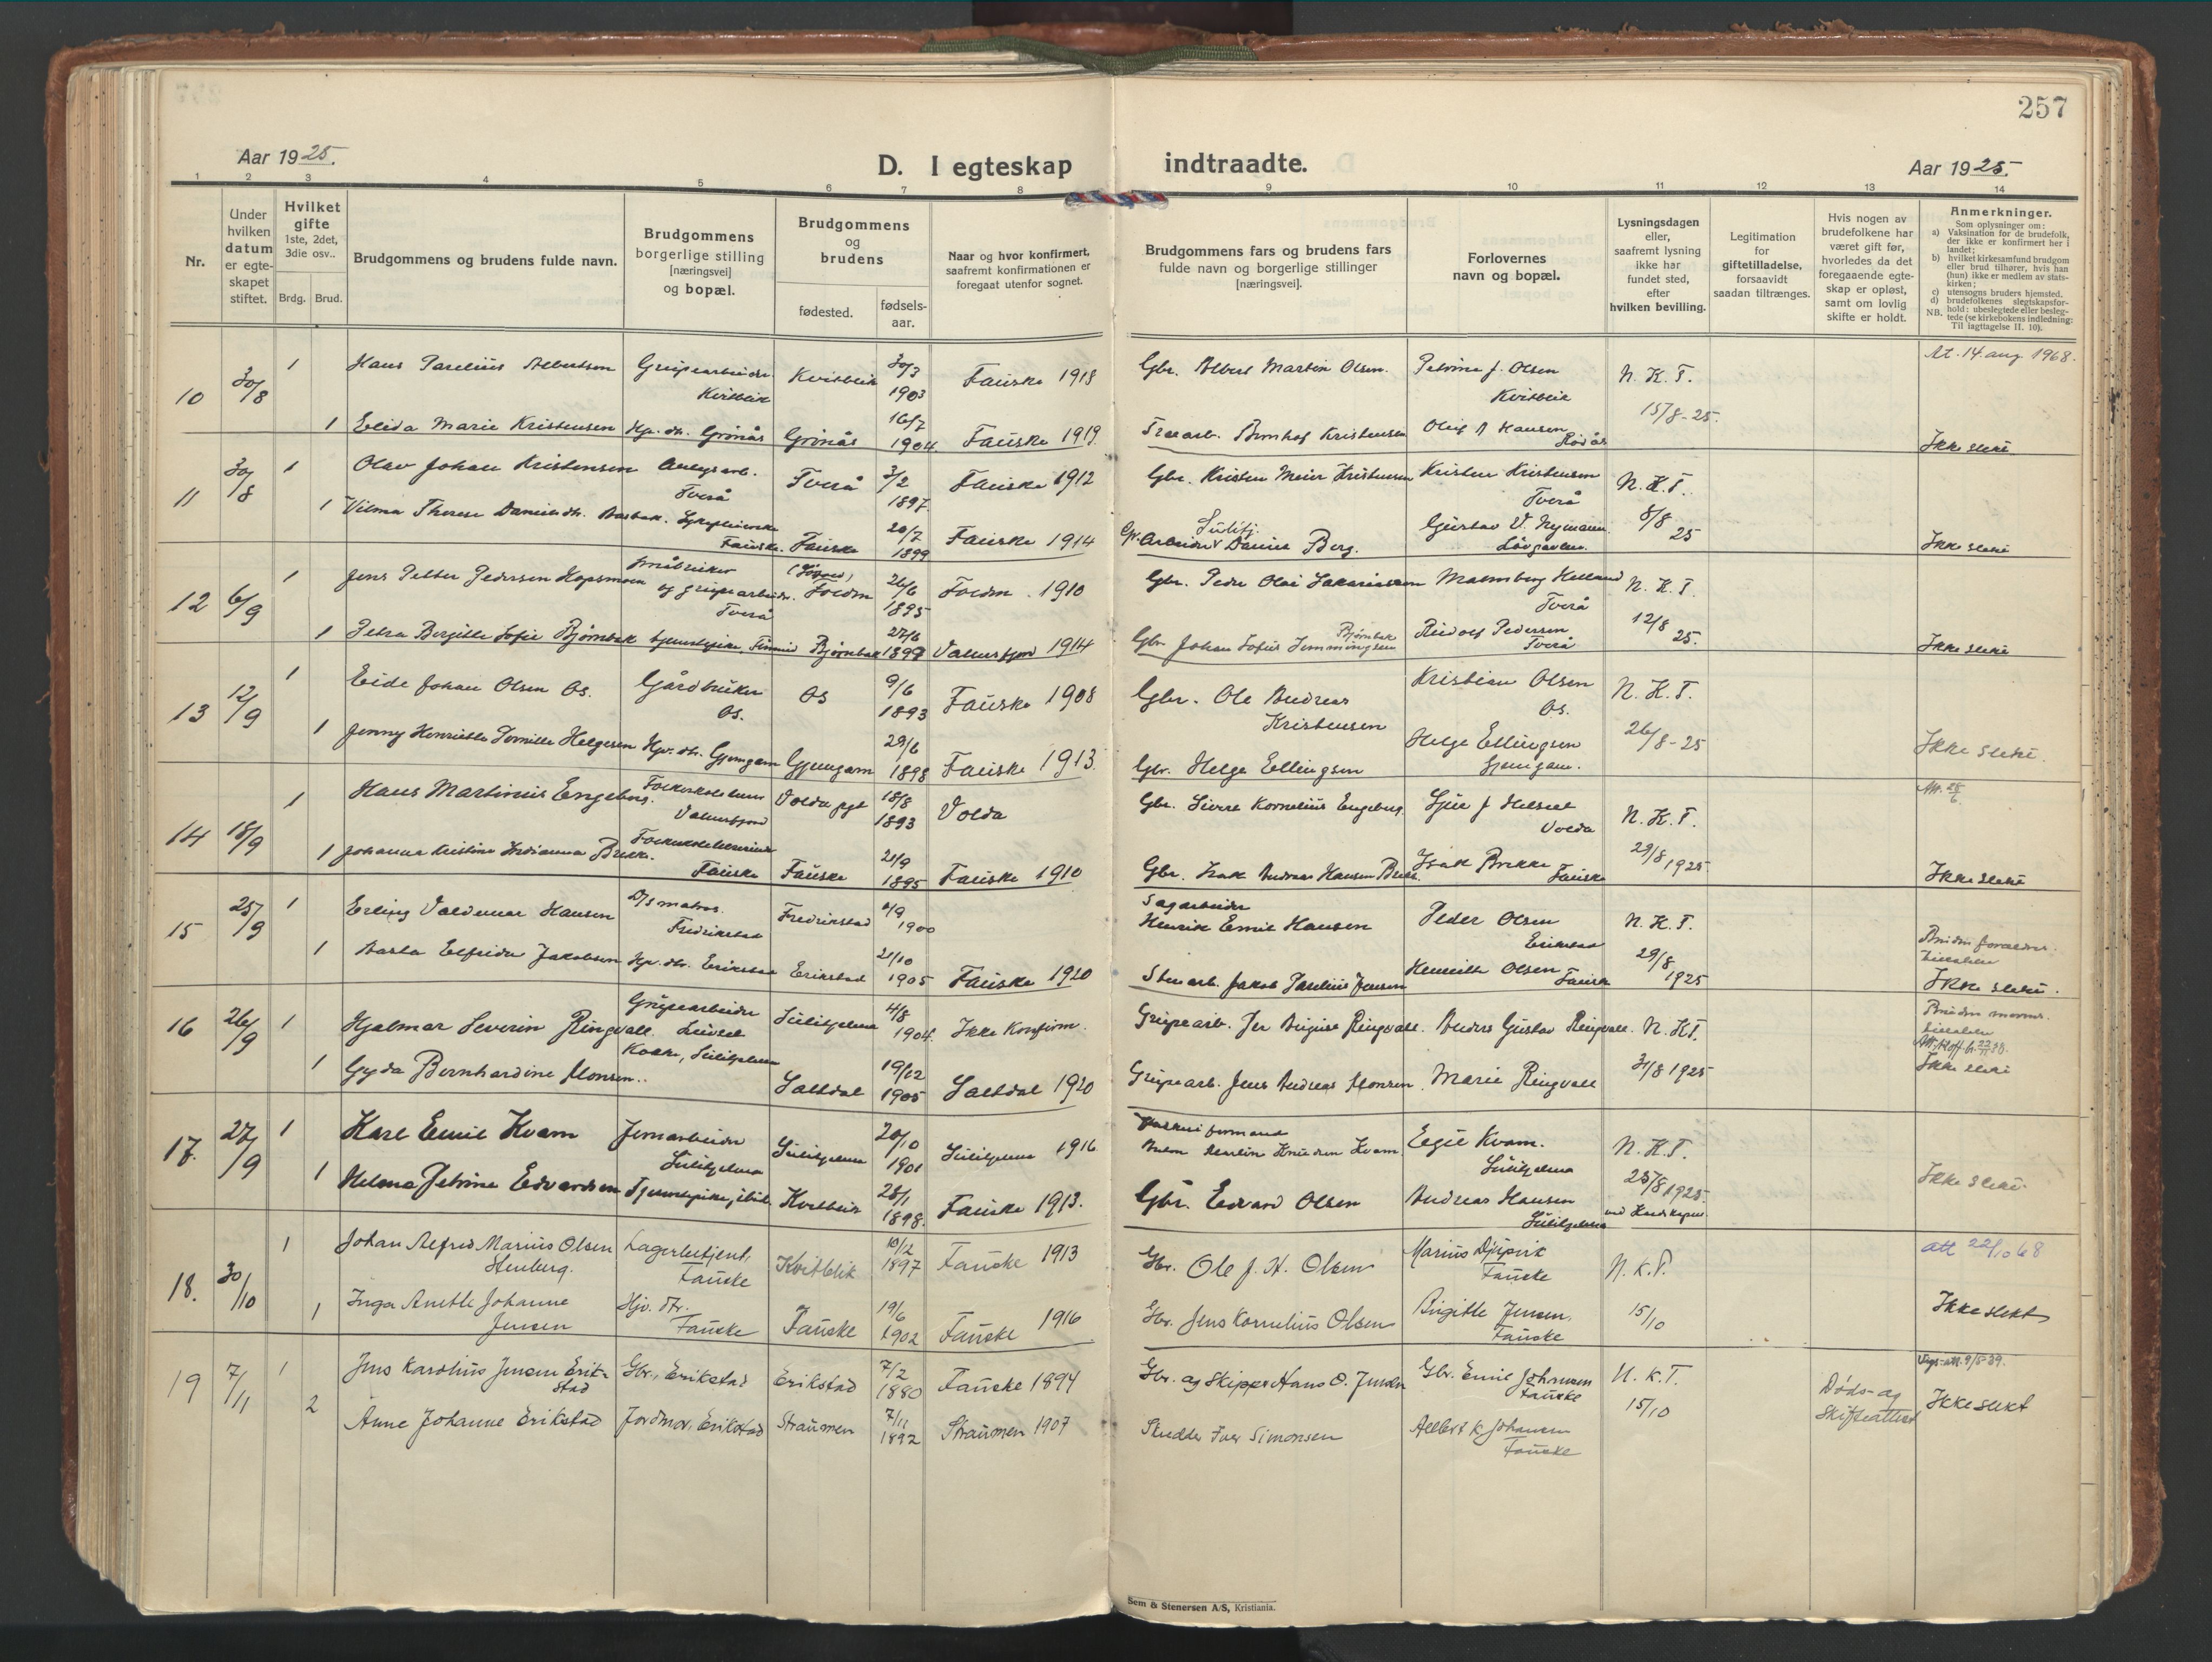 257
Aar 1925.
D. I egteskap indtraadte.
Aar 1925.
1 2 3 4 5 6 7 8 9 10 11 12 13 14
Nr.
Under hvilken datum er egteskapet stiftet.
Hvilket gifte 1ste, 2det, 3die osv..
Brdg. Brud.
Brudgommens og brudens fulde navn.
Brudgommens borgerlige stilling [næringsvei] og bopæl.
Brudgommens og brudens
fødested. fødsels-aar.
Naar og hvor konfirmert, saafremt konfirmationen er foregaat utenfor sognet.
Brudgommens fars og brudens fars fulde navn og borgerlige stillinger [næringsvei].
Forlovernes navn og bopæl.
Lysningsdagen eller, saafremt lysning ikke har fundet sted, efter hvilken bevilling.
Legitimation for giftetilladelse, forsaavidt saadan tiltrænges.
Hvis nogen av brudefolkene har været gift før, hvorledes da det foregaaende egteskap er opløst, samt om lovlig skifte er holdt.
Anmerkninger.
Som oplysninger om:
a) Vaksination for de brudefolk, der ikke er konfirmert her i landet;
b) hvilket kirkesamfund brudgom eller brud tilhører, hvis han (hun) ikke er medlem av statskirken;
c) utensogns bruders hjemsted.
d) brudefolkenes slegtskapsforhold: ubeslegtede eller beslegtede (se kirkebokens indledning: Til iagttagelse II. 10).
NB.
10 30/8 1 Hans Parelius Albertsen Grubearbeider Kvitblik Kvitblik 30/3 1903 Fauske 1918 Gbr. Albert Martin Olsen. Petrine J. Olsen Kvitblik N. K. T. At. 14. aug. 1968.
1 Elida Marie Kristensen Hp. dtr. Grønås Grønås 16/7 1904 Fauske 1919. Kristensen Oluf A Hansen 15/8-25. Ikke slekt
11 30/8 1 Olav Johan Kristensen Anlegsarb. Tverå Tverå 3/2 1897 Fauske 1912 Gbr. Kristen Meier Kristensen Kristen Kristensen Tverå N. K. T.
1 Vilma Therese Danielsdtr. Fauske. Fauske 20/7 1899 Fauske 1914 Sulitj. Arbeider Daniel Berg. Gustav V. Nymann 8/8 25 Ikke slekt
12 6/9 1 Jens Petter Pedersen Hopsmoen Småbruker og grubearbeider. Tverå Folden 26/6 1895 Folden. 1910 Gbr. Peder Olai Sakariassen Malmberg Helland Tverå N. K. T.
1 Petra Bergitte Sofie Bjørnbak tjenestepike, Finneid Bjørnbak 27/6 1897 Valnesfjord 1914 Gbr Johan Sofus Jemmingsen Bjørnbak Rudolf Pedersen Tverå 12/8 25. Ikke slekt
13 12/9 1 Eide Johan Olsen Os. Gårdbruker Os. Os 9/6 1893 Fauske 1908 Gbr. Ole Andreas Kristensen Kristian Olsen Os. N. K. T.
1 Jenny Henriette Pernille Helgesen Hpr. dtr. Gjemgam Gjemgam 29/6 1898 Fauske 1913. Gbr. Helge Ellingsen Helge Ellingsen Gjemgam. 26/8-25 Ikke slekt.
14 18/9 1 Hans Martinus Engebos. Folkeskolelærer Valnesfjord Volda pgd 18/8 1893 Volda Gbr. Sivert Kornelius Engebos. Volda N. K. T. Att. 28/6
1 Johanna Kristine Brekke. Folkeskolelærerinde Fauske Fauske 21/9 1895 Fauske 1910 Gbr. Isak Andreas Hansen Brekke. Isak Brekke Fauske 29/8 1925. Ikke slekt
15 25/9 1 Erling Valdemar Hansen D/S matros. Fredrikstad Fredrikstad 4/9 1900 Sagarbeider Henrik Emil Hansen Peder Olsen Erikstad N. K. T.
1 Aasta Elfrida Jakobsen Hp. dtr. Erikstad Erikstad 21/10 1905 Fauske 1920 Stenarb. Jakob Parelius Jensen Olsen Fauske 29/8 1925 Ikke slekt.
16 26/9 1 Hjalmar Severin Ringvall. Grubearbeider Sulitjelma 4/8 1904. Ikke Konfirm. Grubearb. Per August Ringvall. Anders Gustav Ringvall. N. K. T.
1 Gyda Bernhardine Monsen.. Kokke, Sulitjelma Saltdal 19/12 1905 Saltdal 1920 Grubearb. Jens Andreas Monsen. Marie Ringvall 31/8 1925 Ikke slekt
17. 27/9 1 Karl Emil Kvam Jernarbeider Sulitjelma Sulitjelma 20/10 1901 Sulitjelma 1916 Anton Martin Knudsen Kvam Egil Kvam. Sulitjelma N. K. T.
1 Helena Petrine Edvardsen Tjenestepike, Kvitblik 28/1 1898. Fauske 1913. Gbr. Edvard Olsen Andreas Hansen Sulitjelma 25/8 1925. Ikke slekt.
18. 30/10 1 Johan Alfred Marius Olsen Stenberg. Lagerbetjent, Fauske Kvitblik 10/12 1897 Fauske 1913 Gbr. Ole J. H. Olsen Marius Djupvik Fauske N. K. T. att 22/10 68
1 Inga Anette Johanne Jensen Hjv. dtr. Fauske Fauske 19/6 1902 Fauske 1916 Gbr. Jens Kornelius Olsen Birgitte Jensen, Fauske 15/10 Ikke slekt
19 7/11 1 Jens Karolius Jensen Erikstad Gbr., Erikstad Erikstad 7/2 1880 Fauske 1894 Gbr. og Skipper Hans O. Jensen Gbr. Emil Johansen Fauske N. K. T. Døds- og Skifteattest Vigs-att. 9/5-39.
2 Anne Johanne Erikstad Jordmor, Erikstad Straumen 7/11 1892 Straumen 1907 Iver Simonsen Albert K Johansen Fauske 15/10 Ikke slekt
Sem & Stenersen A/S, Kristiania.